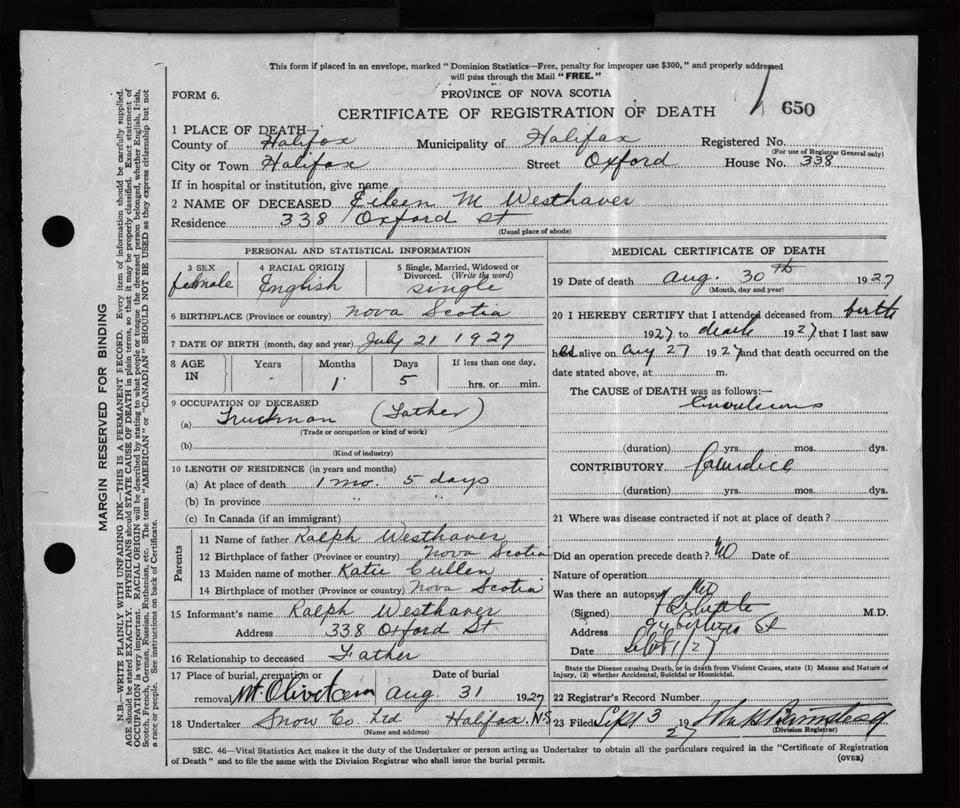 This form if placed in an envelope, marked "Dominion Statistics—Free, penalty for improper use $300," and properly addressed
will pass through the Mail "FREE."
FORM 6.
PROVINCE OF NOVA SCOTIA
CERTIFICATE OF REGISTRATION OF DEATH
650
1 PLACE OF DEATH
County of Halifax Municipality of Halifax Registered No.
(For use of Registrar General only)
City or Town Halifax Street Oxford House No. 338
If in hospital or institution, give name
2 NAME OF DECEASED Eileen M Westhaver
Residence 338 Oxford St
(Usual place of abode)
PERSONAL AND STATISTICAL INFORMATION
3 SEX
female
4 RACIAL ORIGIN
English
5 Single, Married, Widowed or
Divorced. (Write the word)
single
6 BIRTHPLACE (Province or country) Nova Scotia
7 DATE OF BIRTH (month, day and year) July 21 1927
8 AGE
IN
Years
Months
1
Days
5
If less than one day,
hrs. or min.
9 OCCUPATION OF DECEASED
(a) Truckman (Father)
(Trade or occupation or kind of work)
(b)
(Kind of industry)
10 LENGTH OF RESIDENCE (in years and months)
(a) At place of death 1 mo. 5 days
(b) In province " "
(c) In Canada (if an immigrant)
Parents
11 Name of father Ralph Westhaver
12 Birthplace of father (Province or country) Nova Scotia
13 Maiden name of mother Katie Cullen
14 Birthplace of mother (Province or country) Nova Scotia
15 Informant's name Ralph Westhaver
Address 338 Oxford St
16 Relationship to deceased Father
17 Place of burial, cremation or Date of burial
removal Mt. Olivet cem Aug. 31 1927
18 Undertaker Snow Co. Ltd Halifax. N.S
(Name and address)
MEDICAL CERTIFICATE OF DEATH
19 Date of death Aug. 30th 1927
(Month, day and year)
20 I HEREBY CERTIFY that I attended deceased from birth
1927 to death 1927 that I last saw
her alive on Aug 27 1927 and that death occurred on the
date stated above, at m.
The CAUSE of DEATH was as follows:—
(duration) yrs. mos. dys.
CONTRIBUTORY Jaundice
(duration) yrs. mos. dys.
21 Where was disease contracted if not at place of death?
Did an operation precede death? No Date of
Nature of operation
Was there an autopsy No
(Signed) M.D.
Address St
Date Sept 1/27
State the Disease causing Death, or in death from Violent Causes, state (1) Means and Nature of
Injury, (2) whether Accidental, Suicidal or Homicidal.
22 Registrar's Record Number
23 Filed Sept 3 1927
(Division Registrar)
SEC. 46—Vital Statistics Act makes it the duty of the Undertaker or person acting as Undertaker to obtain all the particulars required in the "Certificate of Registration
of Death" and to file the same with the Division Registrar who shall issue the burial permit.
(OVER)
MARGIN RESERVED FOR BINDING
N.B.—WRITE PLAINLY WITH UNFADING INK—THIS IS A PERMANENT RECORD. Every item of information should be carefully supplied.
AGE should be stated EXACTLY. PHYSICIANS should STATE CAUSE OF DEATH in plain terms, so that it may be properly classified. Exact statement of
OCCUPATION is very important. RACIAL ORIGIN will be described by stating to what people or tongue the deceased person belonged, whether English, Irish,
Scotch, French, German, Russian, Ruthenian, etc. The terms "AMERICAN" or "CANADIAN" SHOULD NOT BE USED as they express citizenship but not
a race or people. See instructions on back of Certificate.